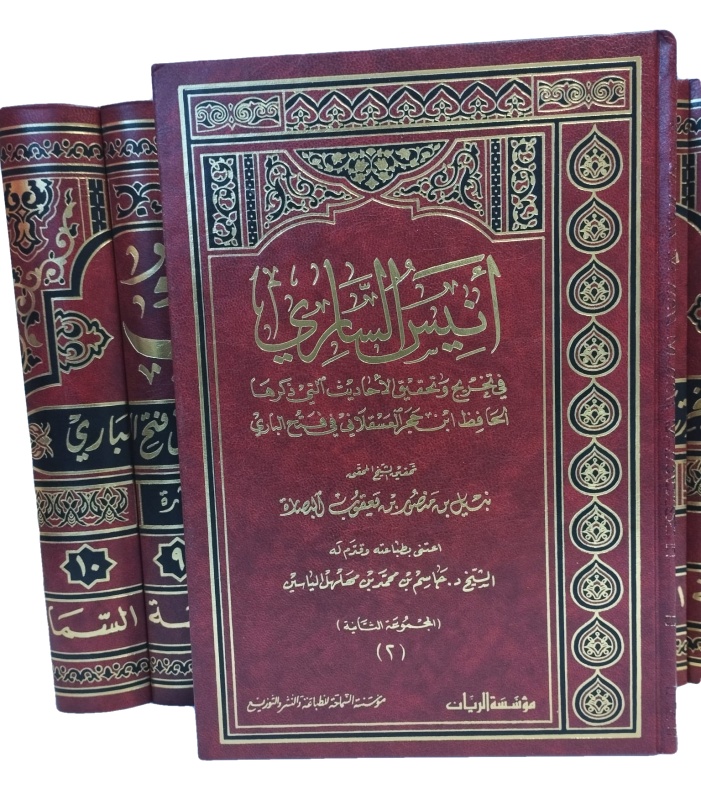 أنيس الساري
في تخريج وتحقيق الأحاديث التي ذكرها
الحافظ ابن حجر العسقلاني في فتح الباري
تحقيق الشيخ المحقق
نبيل بن منصور بن يعقوب البصارة
اعتنى بطباعته وقدم له
الشيخ د. جاسم بن محمد بن مهلهل الياسين
(المجموعة الثانية)
(٢)
مؤسسة الريان
مؤسسة السماحة للطباعة والنشر والتوزيع
فتح الباري
٩
١٠
السما